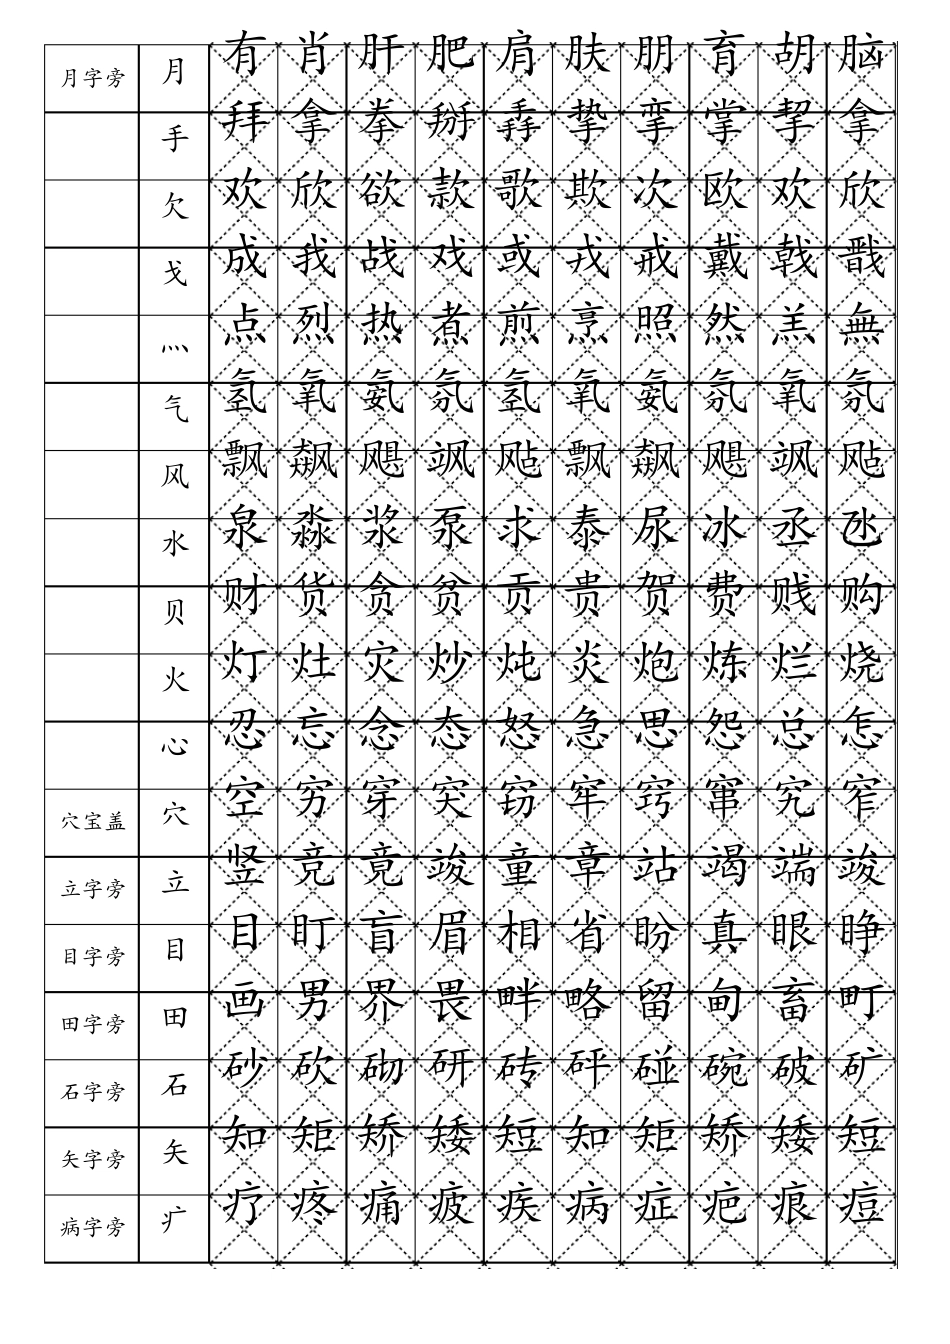 月字旁 月 有 肖 肝 肥 肩 肤 朋 育 胡 脑
手 拜 拿 拳 掰 掱 挚 挛 掌 挈 拿
欠 欢 欣 欲 款 歌 欺 次 欧 欢 欣
戈 成 我 战 戏 或 戎 戒 戴 戟 戬
灬 点 烈 热 煮 煎 烹 照 然 羔 無
气 氢 氧 氨 氛 氢 氧 氨 氛 氧 氛
风 飘 飙 飓 飒 飐 飘 飙 飓 飒 飐
水 泉 淼 浆 泵 求 泰 尿 冰 丞 氹
贝 财 货 贪 贫 贡 贵 贺 费 贱 购
火 灯 灶 灾 炒 炖 炎 炮 炼 烂 烧
心 忍 忘 念 态 怒 急 思 怨 总 怎
穴宝盖 穴 空 穷 穿 突 窃 牢 窍 窜 究 窄
立字旁 立 竖 竞 竟 竣 童 章 站 竭 端 竣
目字旁 目 目 盯 盲 眉 相 省 盼 真 眼 睁
田字旁 田 画 男 界 畏 畔 略 留 甸 畜 町
石字旁 石 砂 砍 砌 研 砖 砰 碰 碗 破 矿
矢字旁 矢 知 矩 矫 矮 短 知 矩 矫 矮 短
病字旁 疒 疗 疼 痛 疲 疾 病 症 疤 痕 痘